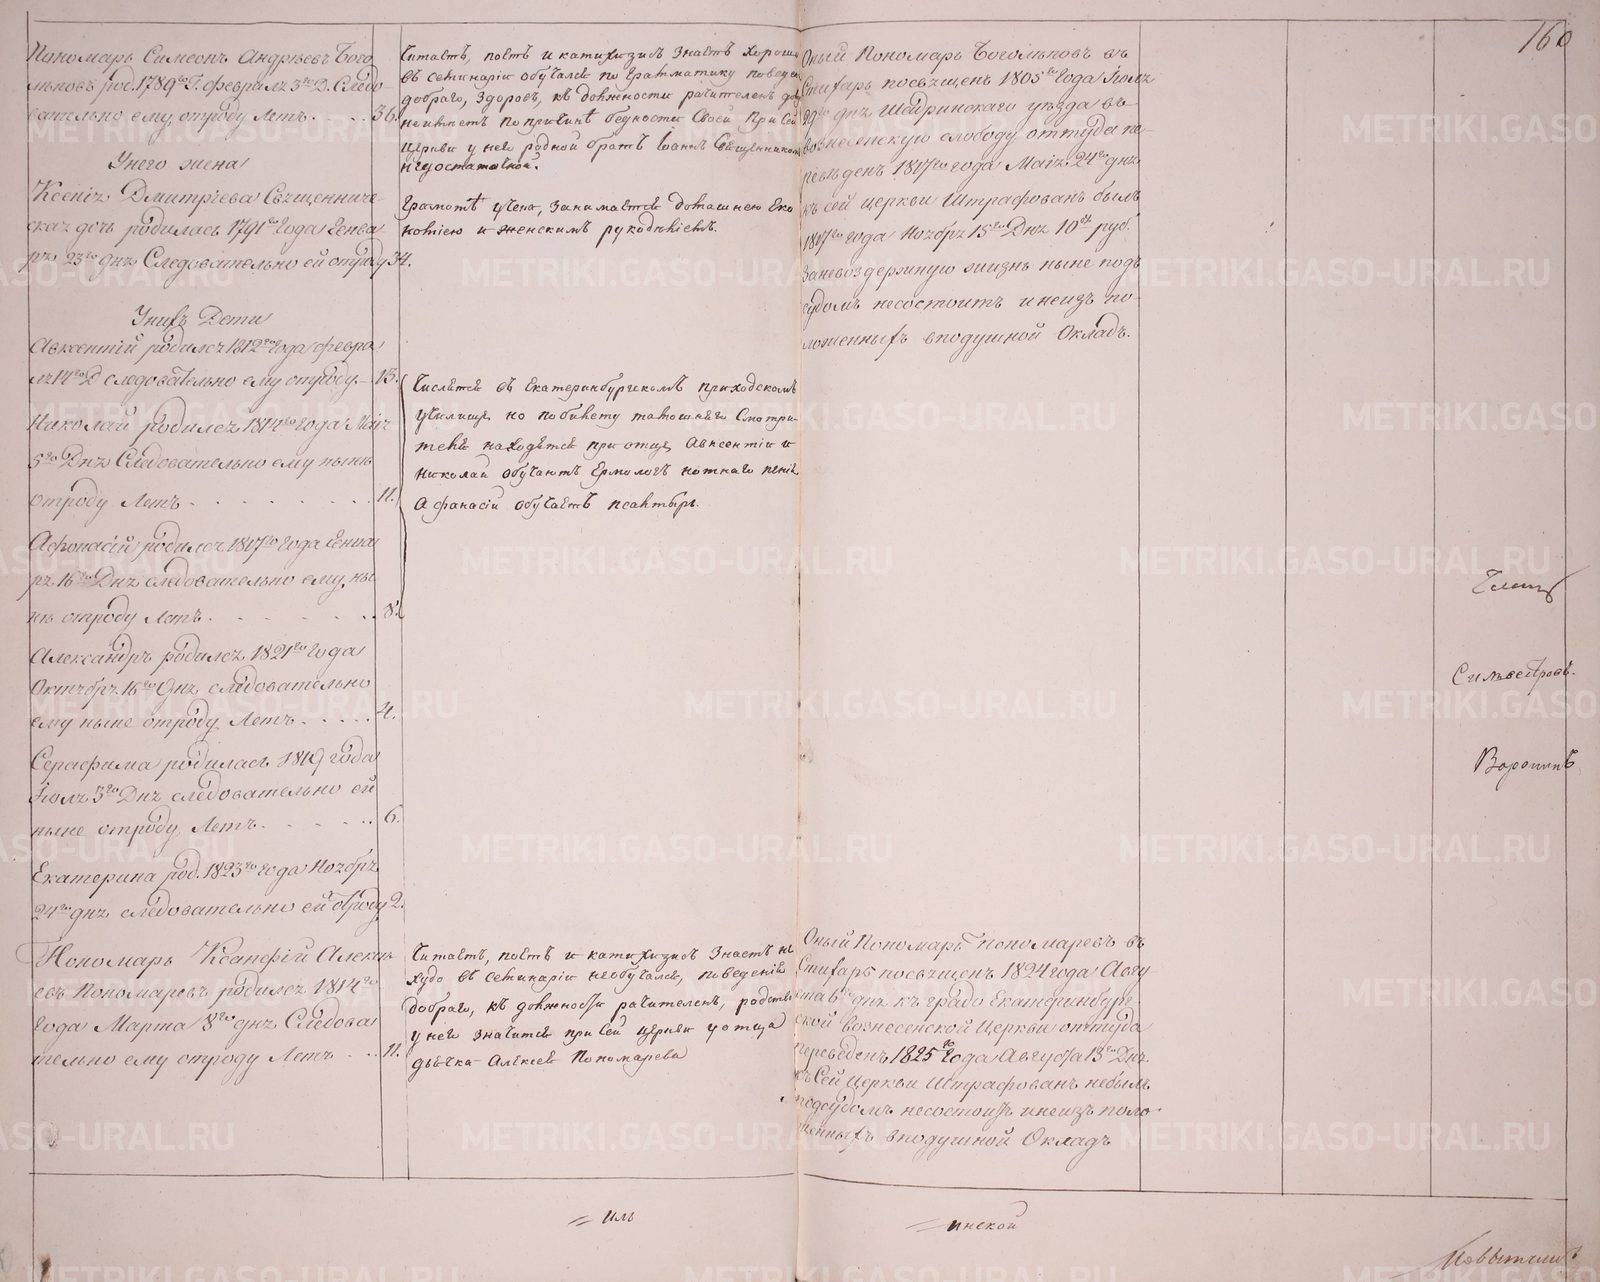 160
Пономарь Симеонъ Андрѣевъ Бого
мѣновъ? род. 1789го Г. февраля 3го Д. Слѣдо
вательно ему отроду Летъ . . . . 36.
У него жена
Ксенія Дмитріева Священниче-
ская дочь родилась 1791го года Генва
ря 23го дня Следовательно ей отроду 34.
У нихъ Дети
Авксентий родился 1812го года февра
ля 14го Д следовательно ему отроду 13.
Николай родился 1814го года Маія
5го Дня Следовательно ему нынѣ
отроду Летъ . . . . . . . . 11.
Афонасій родился 1817го года Генва
ря 16го Дня следовательно ему ны
нѣ отроду Летъ . . . . . . . 8.
Александръ родился 1821го года
Октября 16го Дня следовательно
ему ныне отроду Летъ . . . . . 4.
Серафима родилась 1819 года
Іюля 3го Дня следовательно ей
ныне отроду Летъ . . . . . . 6.
Екатерина род. 1823го года Ноября
24го дня следовательно ей отроду 2.
Пономарь Ксанфій Алексѣ
евъ Пономаревъ родился 1814го
Года Марта 8го дня Следова
тельно ему отроду Летъ . . . 11.
Читаетъ, поетъ и катихизисъ знаетъ хорошо
въ семинаріи обучался по грамматику поведен
добраго, здоровъ, къ должности рачителенъ
неимѣетъ по причинѣ бедности Своей При Сей
Церкви у него родной братъ Іоаннъ Священникомъ
Недостаточной.
Грамотѣ учена, занимается домашнею Эко
номіею и женскимъ рукодѣліемъ.
Числятся въ Екатеринбургскомъ приходскомъ
училище но по билету тамошняго Смотри-
теля находятся при отце, Авксентіи и
Николай обучаютъ Ермологъ нотнаго пенія
Афанасій обучаетъ псалтырь.
Читаетъ, поетъ и катихизисъ знаетъ не
худо въ семинаріи необучался, поведенія
добраго, къ должности рачителенъ, родство
у него значится при Сей церкви у отца
дьячка Алексея Пономарева
Оный Пономарь въ
Стихарь посвященъ 1805го Года Іюля
29го дня Шадринскаго уѣзда въ
вознесенскую слободу оттуда пе-
реведенъ 1817го года Маія 24го дня
къ сей церкви Штрафованъ былъ
1817го года Ноября 15го Дня 10ю руб.
За невоздержную жизнь ныне подъ
судомъ несостоитъ и неизъ по-
ложенныхъ вподушной Окладъ.
Оный Пономарь Пономаревъ въ
Стихарь посвященъ 1824 года Авгу-
ста 6го дня къ градо Екатеринбург-
ской вознесенской Церкви оттуда
переведенъ 1825го Года Августа 13го Дня
къ Сей Церкви Штрафованъ небылъ
подсудомъ несостоитъ и неизъ поло-
женныхъ вподушной Окладъ
Членъ
Сильвестровъ.
Воронинъ
иль
инской
METRIKI.GASO-URAL.RU